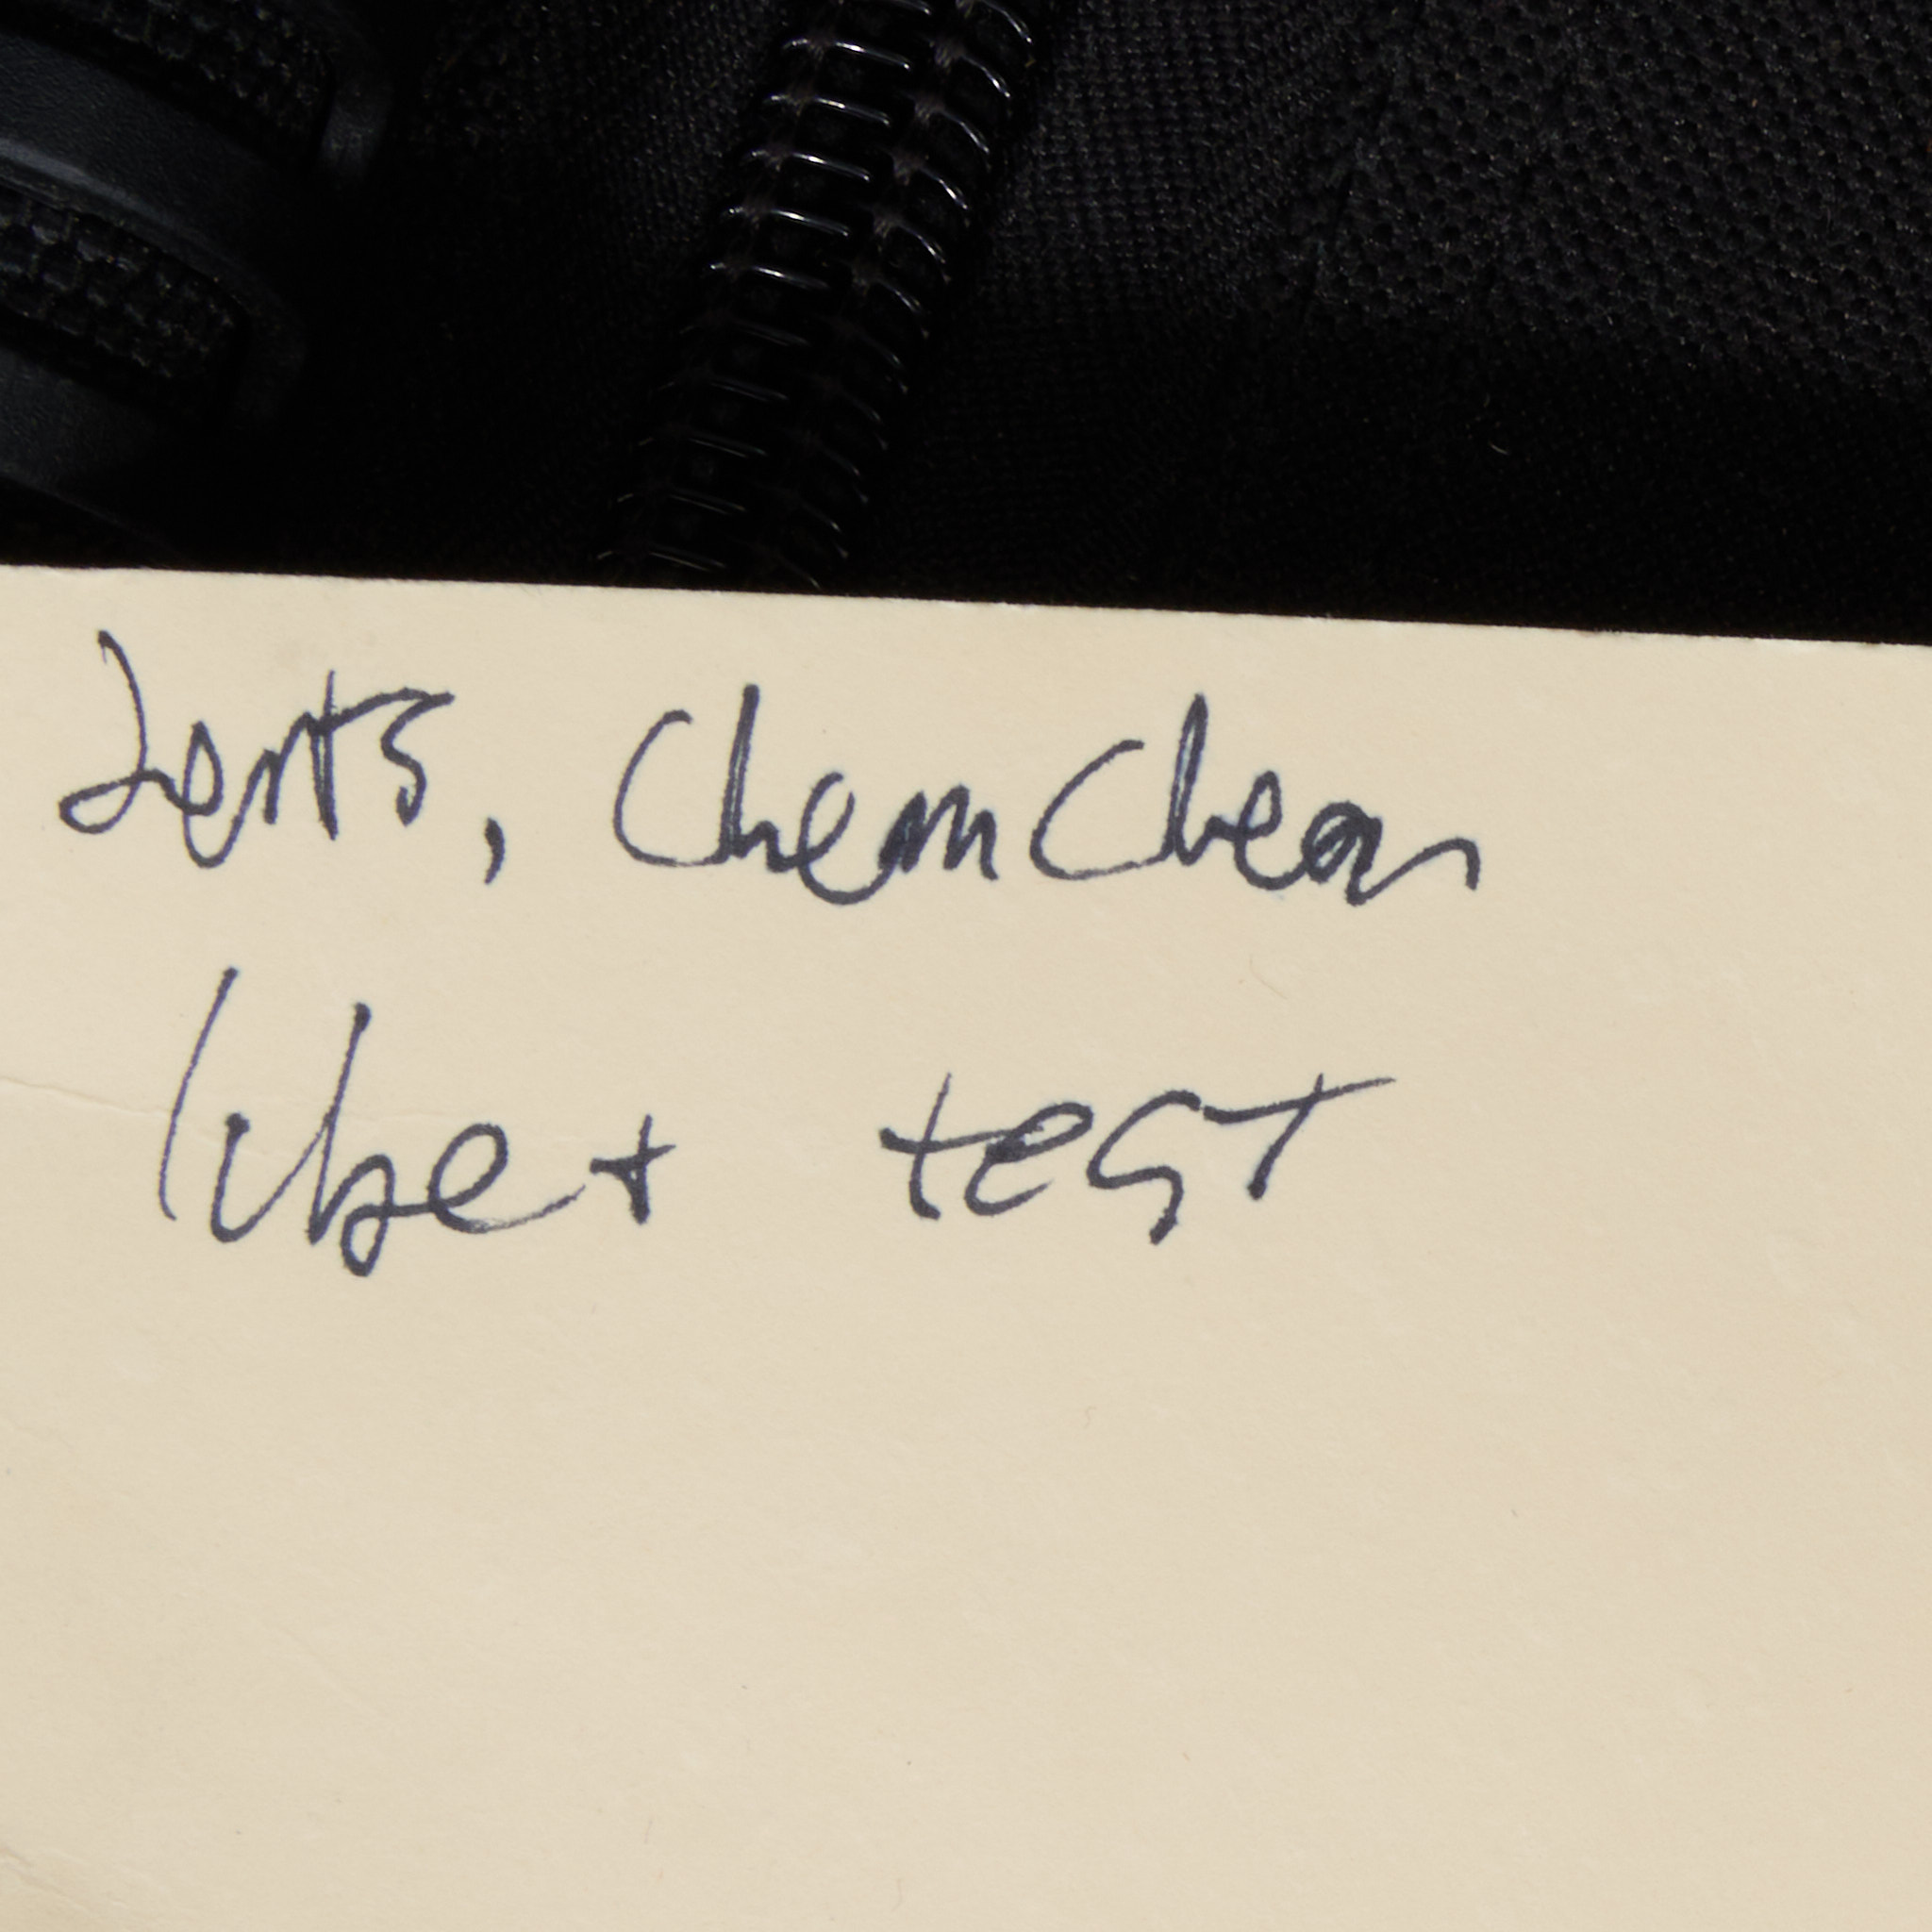 dents, Chem Clean
lube + test